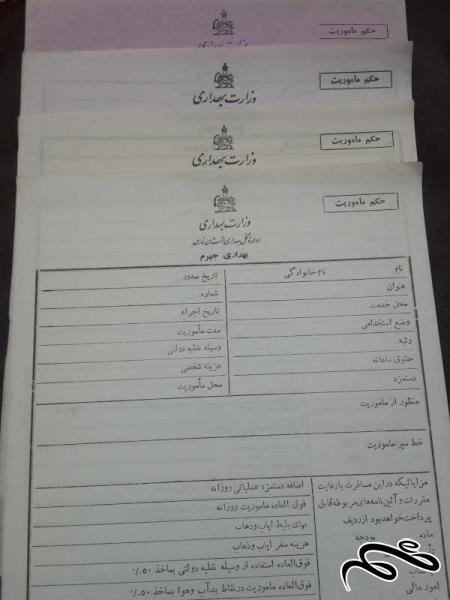 حکم ماموریت
حکم ماموریت
وزارت بهداری
حکم ماموریت
وزارت بهداری
حکم ماموریت
وزارت بهداری
بهداری جهرم
نام
نام خانوادگی
تاریخ صدور
عنوان
شماره
محل خدمت
تاریخ اجراء
وضع استخدامی
مدت مأموریت
رتبه
وسیله نقلیه دولتی
حقوق ماهانه
هزینه شخصی
دستمزد
محل مأموریت
منظور از ماموریت
خط سیر ماموریت
مزایائیکه در این مسافرت با رعایت
مقررات و آئین نامه‌های مربوطه قابل
پرداخت خواهد بود از ردیف
ماده
بودجه
امور مالی
اضافه دستمزد عملیاتی روزانه
فوق العاده ماموریت روزانه
بهای بلیط ایاب و ذهاب
هزینه سفر ایاب و ذهاب
فوق‌العاده استفاده از وسیله نقلیه دولتی بماخذ ۵۰٪
فوق‌العاده ماموریت در نقاط بد آب و هوا بماخذ ۵۰٪